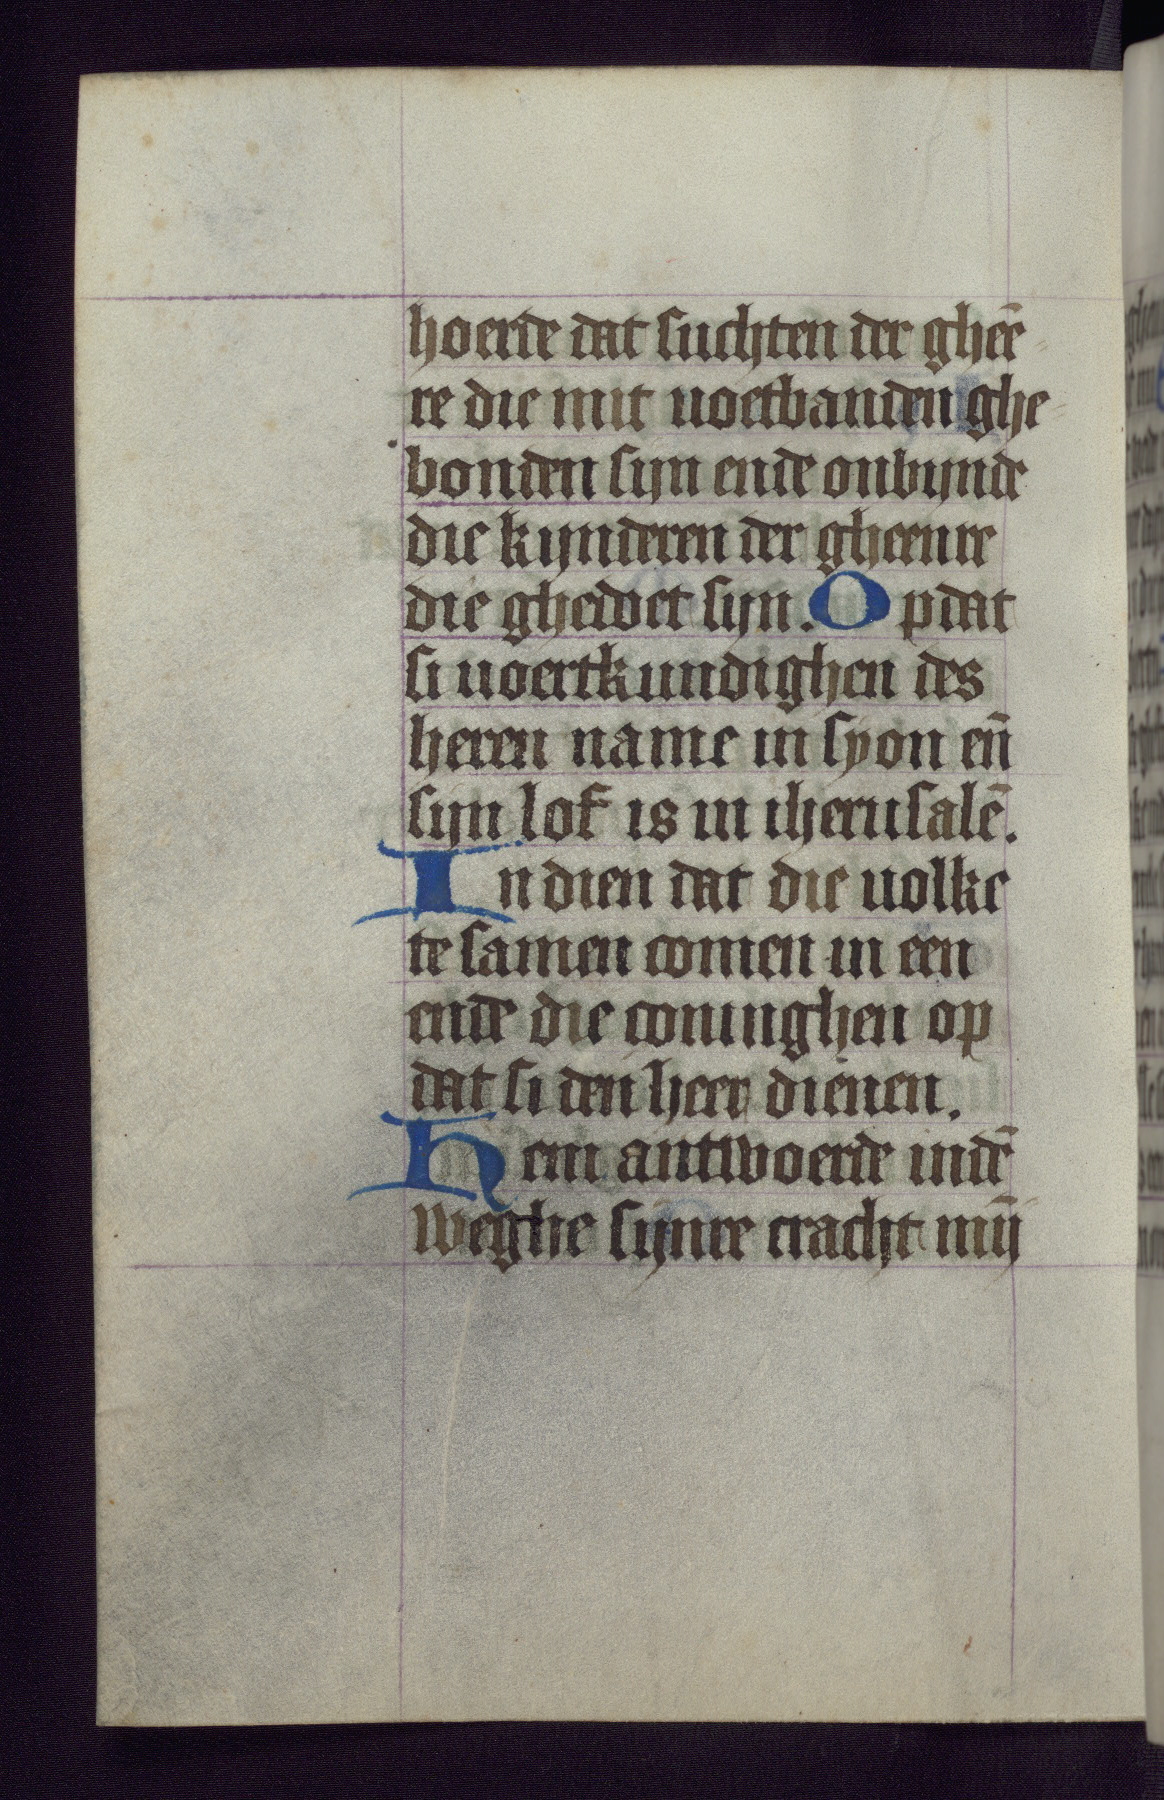 hoerde dat suchten der gheē
re die mit uoetbanden ghe
bonden sijn ende onbijnde
die kijnderen der gheenre
die ghedoet sijn. Opdat
si uoertkundighen des
heren name in syon eñ
sijn lof is in iherusalē.
In dien dat die uolke
te samen comen in een
ende die coninghen op
dat si den heer dienen.
Hem antwoerde indē
weghe sijnre cracht mīj